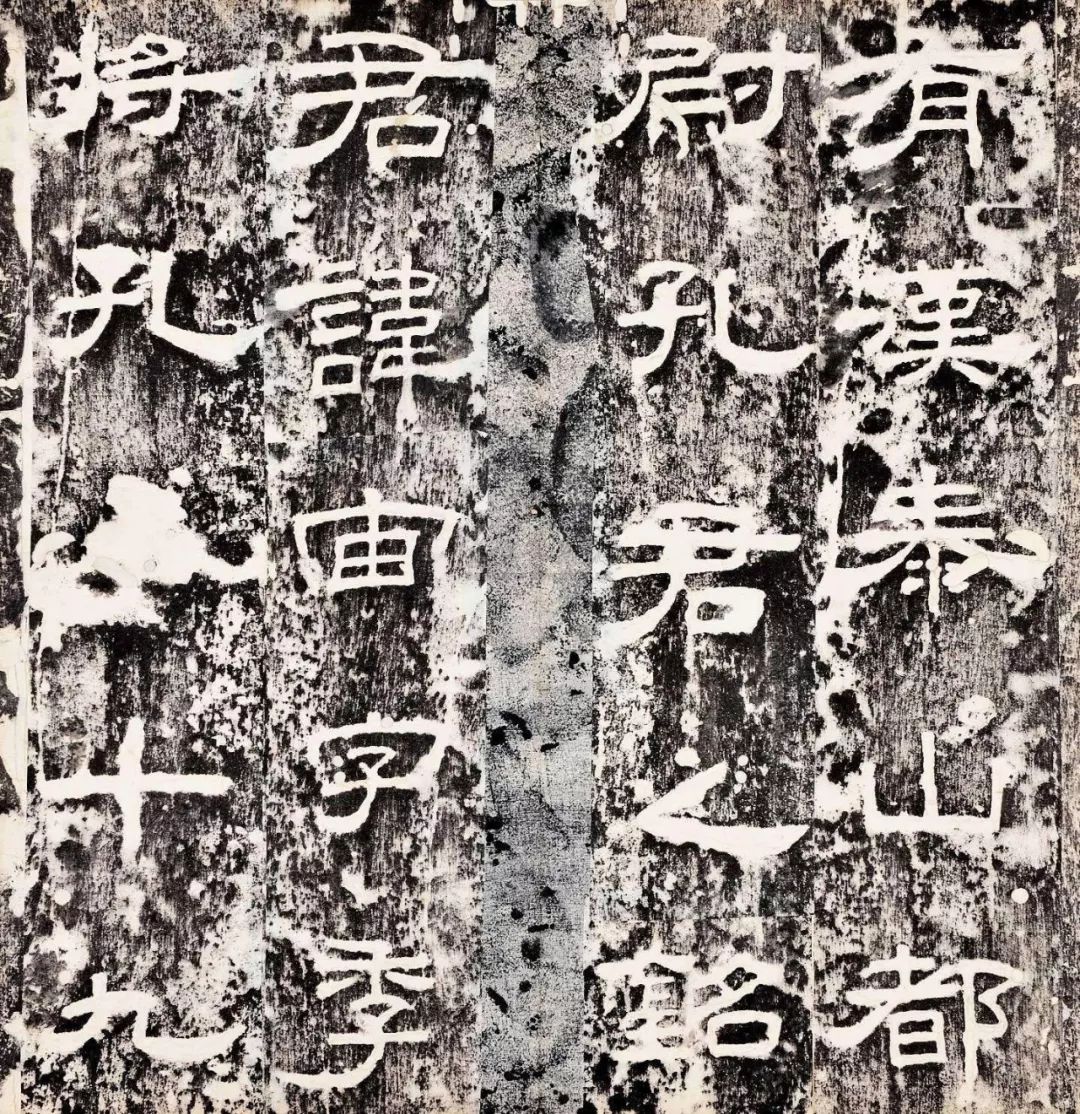 有漢泰山都
尉孔君之銘
君諱宙字季
將孔十九